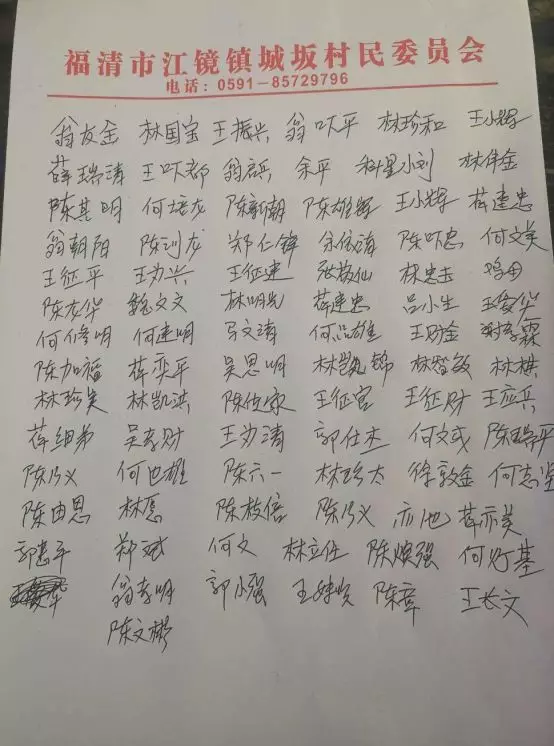 福清市江镜镇城坂村民委员会
电话：0591－85729796
翁友金 林国宝 王振兴 翁吓平 林珍和 王小辉
薛瑞涛 王吓都 翁启兵 余平 科星小刘 林伴金
陈其明 何培龙 陈新朝 陈雄辉 王小辉 薛建忠
翁朝阳 陈训龙 郑仁锋 余依海 陈吓忠 何文美
王征平 王为兴 王征建 林忠吉
陈友华 魏文文 林明光 薛建忠 吕小生 王俊华
何修明 何建明 马文涛 何品雄 王财金
陈加福 薛奕平 吴思明 林凯锦 林智敏 林棋
林珍英 林凯洪 陈依家 王征官 王征财 王应兵
薛细弟 吴孝财 王为清 郭仕杰 何文成 陈瑞平
陈乃义 何也雄 陈六一 林珍太 徐敦金 何志坚
陈由恩 林愿 陈枝倍 陈乃义 亦地 薛亦美
郭惠平 郑斌 何文 林立任 陈焕强 何灯基
翁孝明 郭小强 陈章 王长文
陈文彬